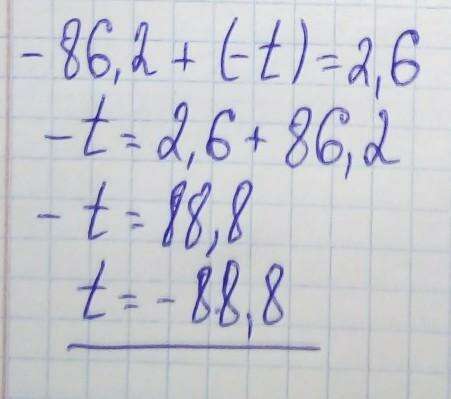 - 86,2 + (-t) = 2,6
- t = 2,6 + 86,2
- t = 88,8
t = - 88,8